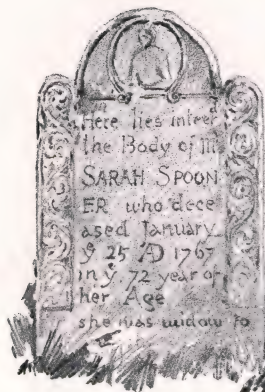 Here lies interd
the Body of M
SARAH SPOON
ER who dece
ased January
ye 25 AD 1767
in ye 72 year of
her Age
she was widow to